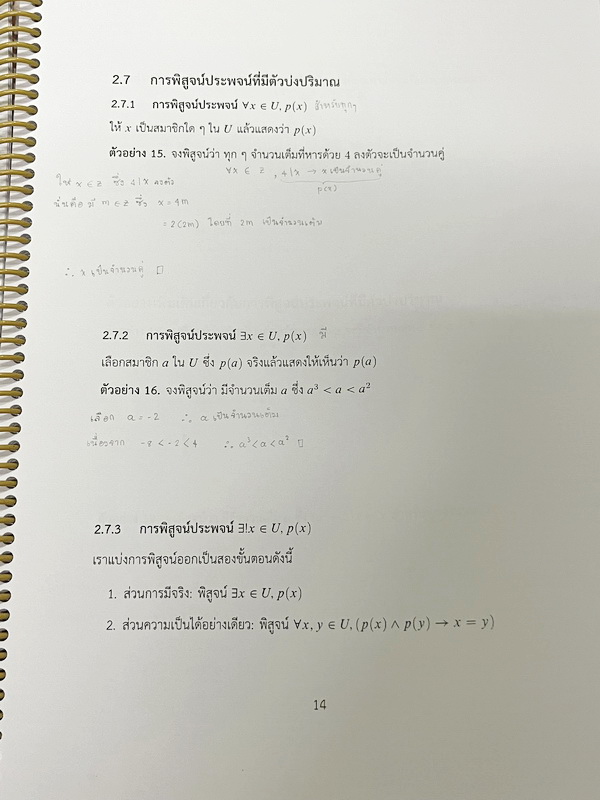 2.7 การพิสูจน์ประพจน์ที่มีตัวบ่งปริมาณ
2.7.1 การพิสูจน์ประพจน์ ∀x ∈ U, p(x) สำหรับทุกๆ
ให้ x เป็นสมาชิกใด ๆ ใน U แล้วแสดงว่า p(x)
ตัวอย่าง 15. จงพิสูจน์ว่า ทุก ๆ จำนวนเต็มที่หารด้วย 4 ลงตัวจะเป็นจำนวนคู่
∀x ∈ Z, 4|x → x เป็นจำนวนคู่
p(x)
ให้ x ∈ Z ซึ่ง 4|x ลงตัว
นั่นคือ มี m ∈ Z ซึ่ง x = 4m
= 2(2m) โดยที่ 2m เป็นจำนวนเต็ม
∴ x เป็นจำนวนคู่ □
2.7.2 การพิสูจน์ประพจน์ ∃x ∈ U, p(x) มี
เลือกสมาชิก a ใน U ซึ่ง p(a) จริงแล้วแสดงให้เห็นว่า p(a)
ตัวอย่าง 16. จงพิสูจน์ว่า มีจำนวนเต็ม a ซึ่ง a³ < a < a²
เลือก a = -2 ∴ a เป็นจำนวนเต็ม
เนื่องจาก -8 < -2 < 4 ∴ a³ < a < a² □
2.7.3 การพิสูจน์ประพจน์ ∃!x ∈ U, p(x)
เราแบ่งการพิสูจน์ออกเป็นสองขั้นตอนดังนี้
1. ส่วนการมีจริง: พิสูจน์ ∃x ∈ U, p(x)
2. ส่วนความเป็นได้อย่างเดียว: พิสูจน์ ∀x, y ∈ U, (p(x) ∧ p(y) → x = y)
14